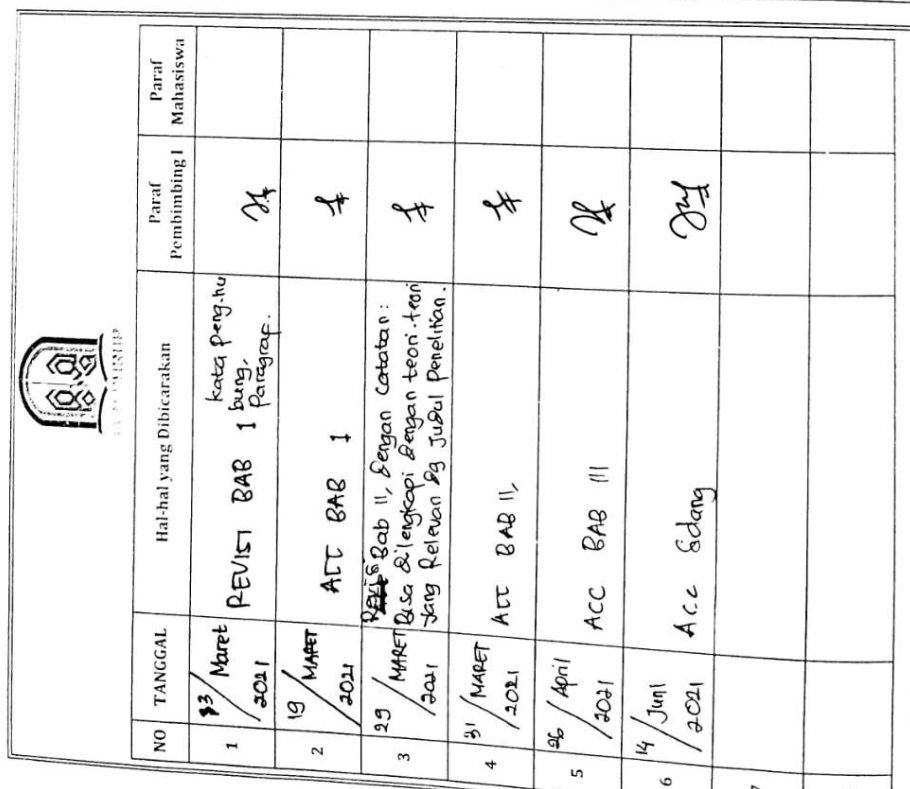 NO TANGGAL Hal-hal yang Dibicarakan Paraf Pembimbing I Paraf Mahasiswa
1 Maret 2021 REVISI BAB 1 kata peng.hu
bung,
Paragraf.
2 19/MARET 2021 ACC BAB 1
3 29/MARET 2021 Bab II, dengan Catatan:
Bisa dilengkapi dengan teori-teori
yang Relevan dg Judul Penelitian.
4 31/MARET 2021 ACC BAB II,
5 26/April 2021 ACC BAB III
6 14/Juni 2021 Acc Sidang
7